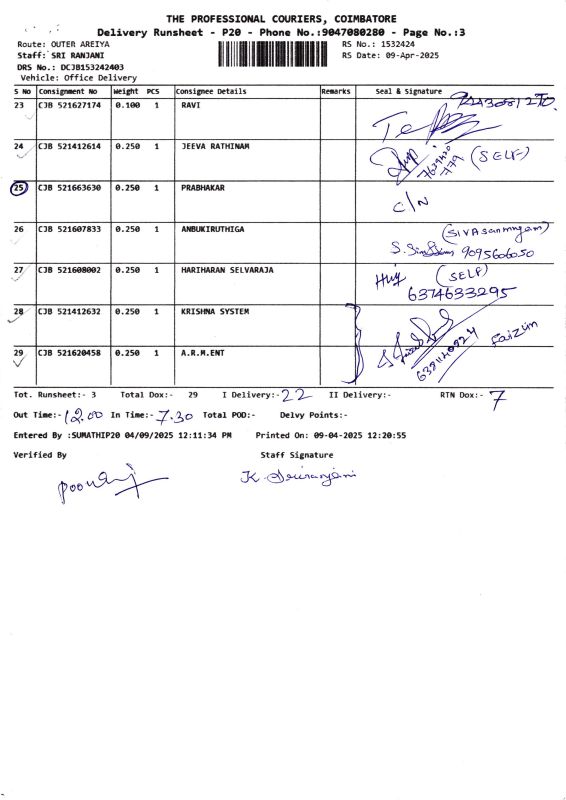 THE PROFESSIONAL COURIERS, COIMBATORE
Delivery Runsheet - P20 - Phone No.:9047080280 - Page No.:3
Route: OUTER AREIYA RS No.: 1532424
Staff: SRI RANJANI RS Date: 09-Apr-2025
DRS No.: DCJB153242403
Vehicle: Office Delivery
S No Consignment No Weight PCS Consignee Details Remarks Seal & Signature
23 CJB 521627174 0.100 1 RAVI
24 CJB 521412614 0.250 1 JEEVA RATHINAM (SELF)
25 CJB 521663630 0.250 1 PRABHAKAR C/N
26 CJB 521607833 0.250 1 ANBUKIRUTHIGA (SIVASanmugam)
9095606050
27 CJB 521608002 0.250 1 HARIHARAN SELVARAJA (SELF)
6374633295
28 CJB 521412632 0.250 1 KRISHNA SYSTEM Faizun
29 CJB 521620458 0.250 1 A.R.M.ENT
Tot. Runsheet:- 3 Total Dox:- 29 I Delivery:- 22 II Delivery:- RTN Dox:- 7
Out Time:- 12.00 In Time:- 7.30 Total POD:- Delvy Points:-
Entered By :SUMATHIP20 04/09/2025 12:11:34 PM Printed On: 09-04-2025 12:20:55
Verified By Staff Signature
K.